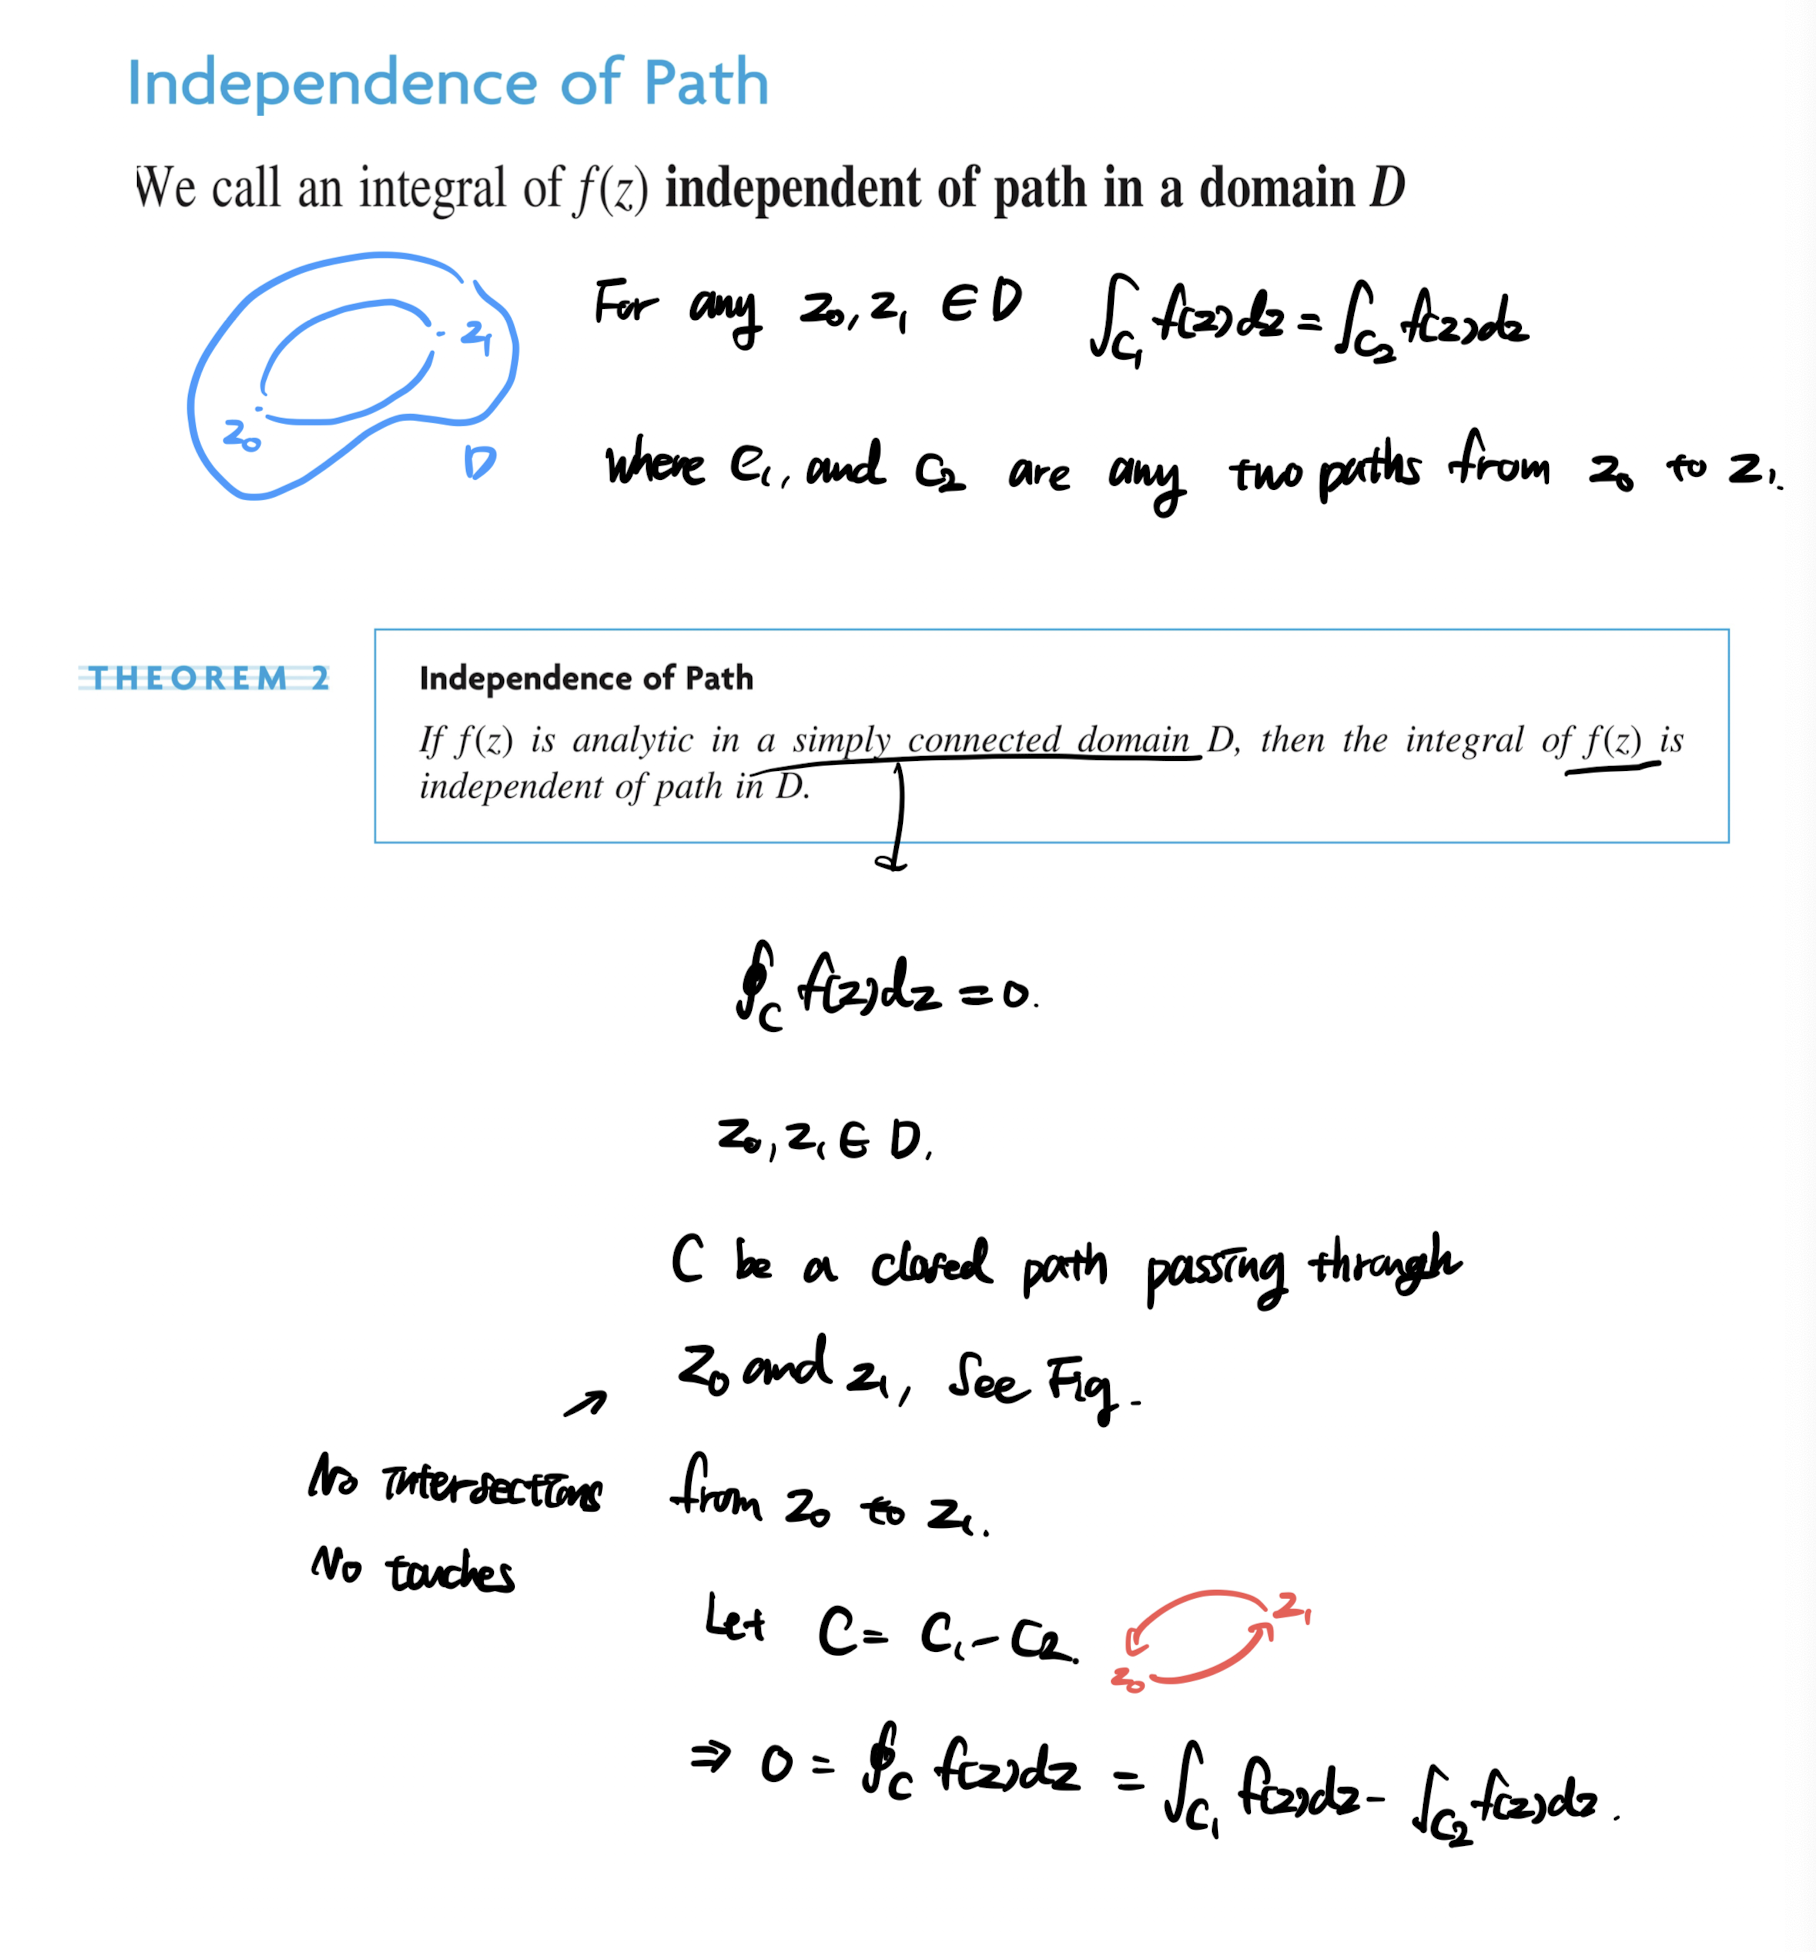 Independence of Path
We call an integral of f(z) independent of path in a domain D
z₁
z₀
D
For any z₀, z₁ ∈ D ∫_C₁ f(z)dz = ∫_C₂ f(z)dz
where C₁, and C₂ are any two paths from z₀ to z₁.
THEOREM 2
Independence of Path
If f(z) is analytic in a simply connected domain D, then the integral of f(z) is
independent of path in D.
∮_C f(z)dz = 0.
z₀, z₁ ∈ D.
C be a closed path passing through
z₀ and z₁, See Fig.
No intersections
from z₀ to z₁.
No touches
Let C = C₁ - C₂.
z₁
z₀
⇒ 0 = ∮_C f(z)dz = ∫_C₁ f(z)dz - ∫_C₂ f(z)dz.